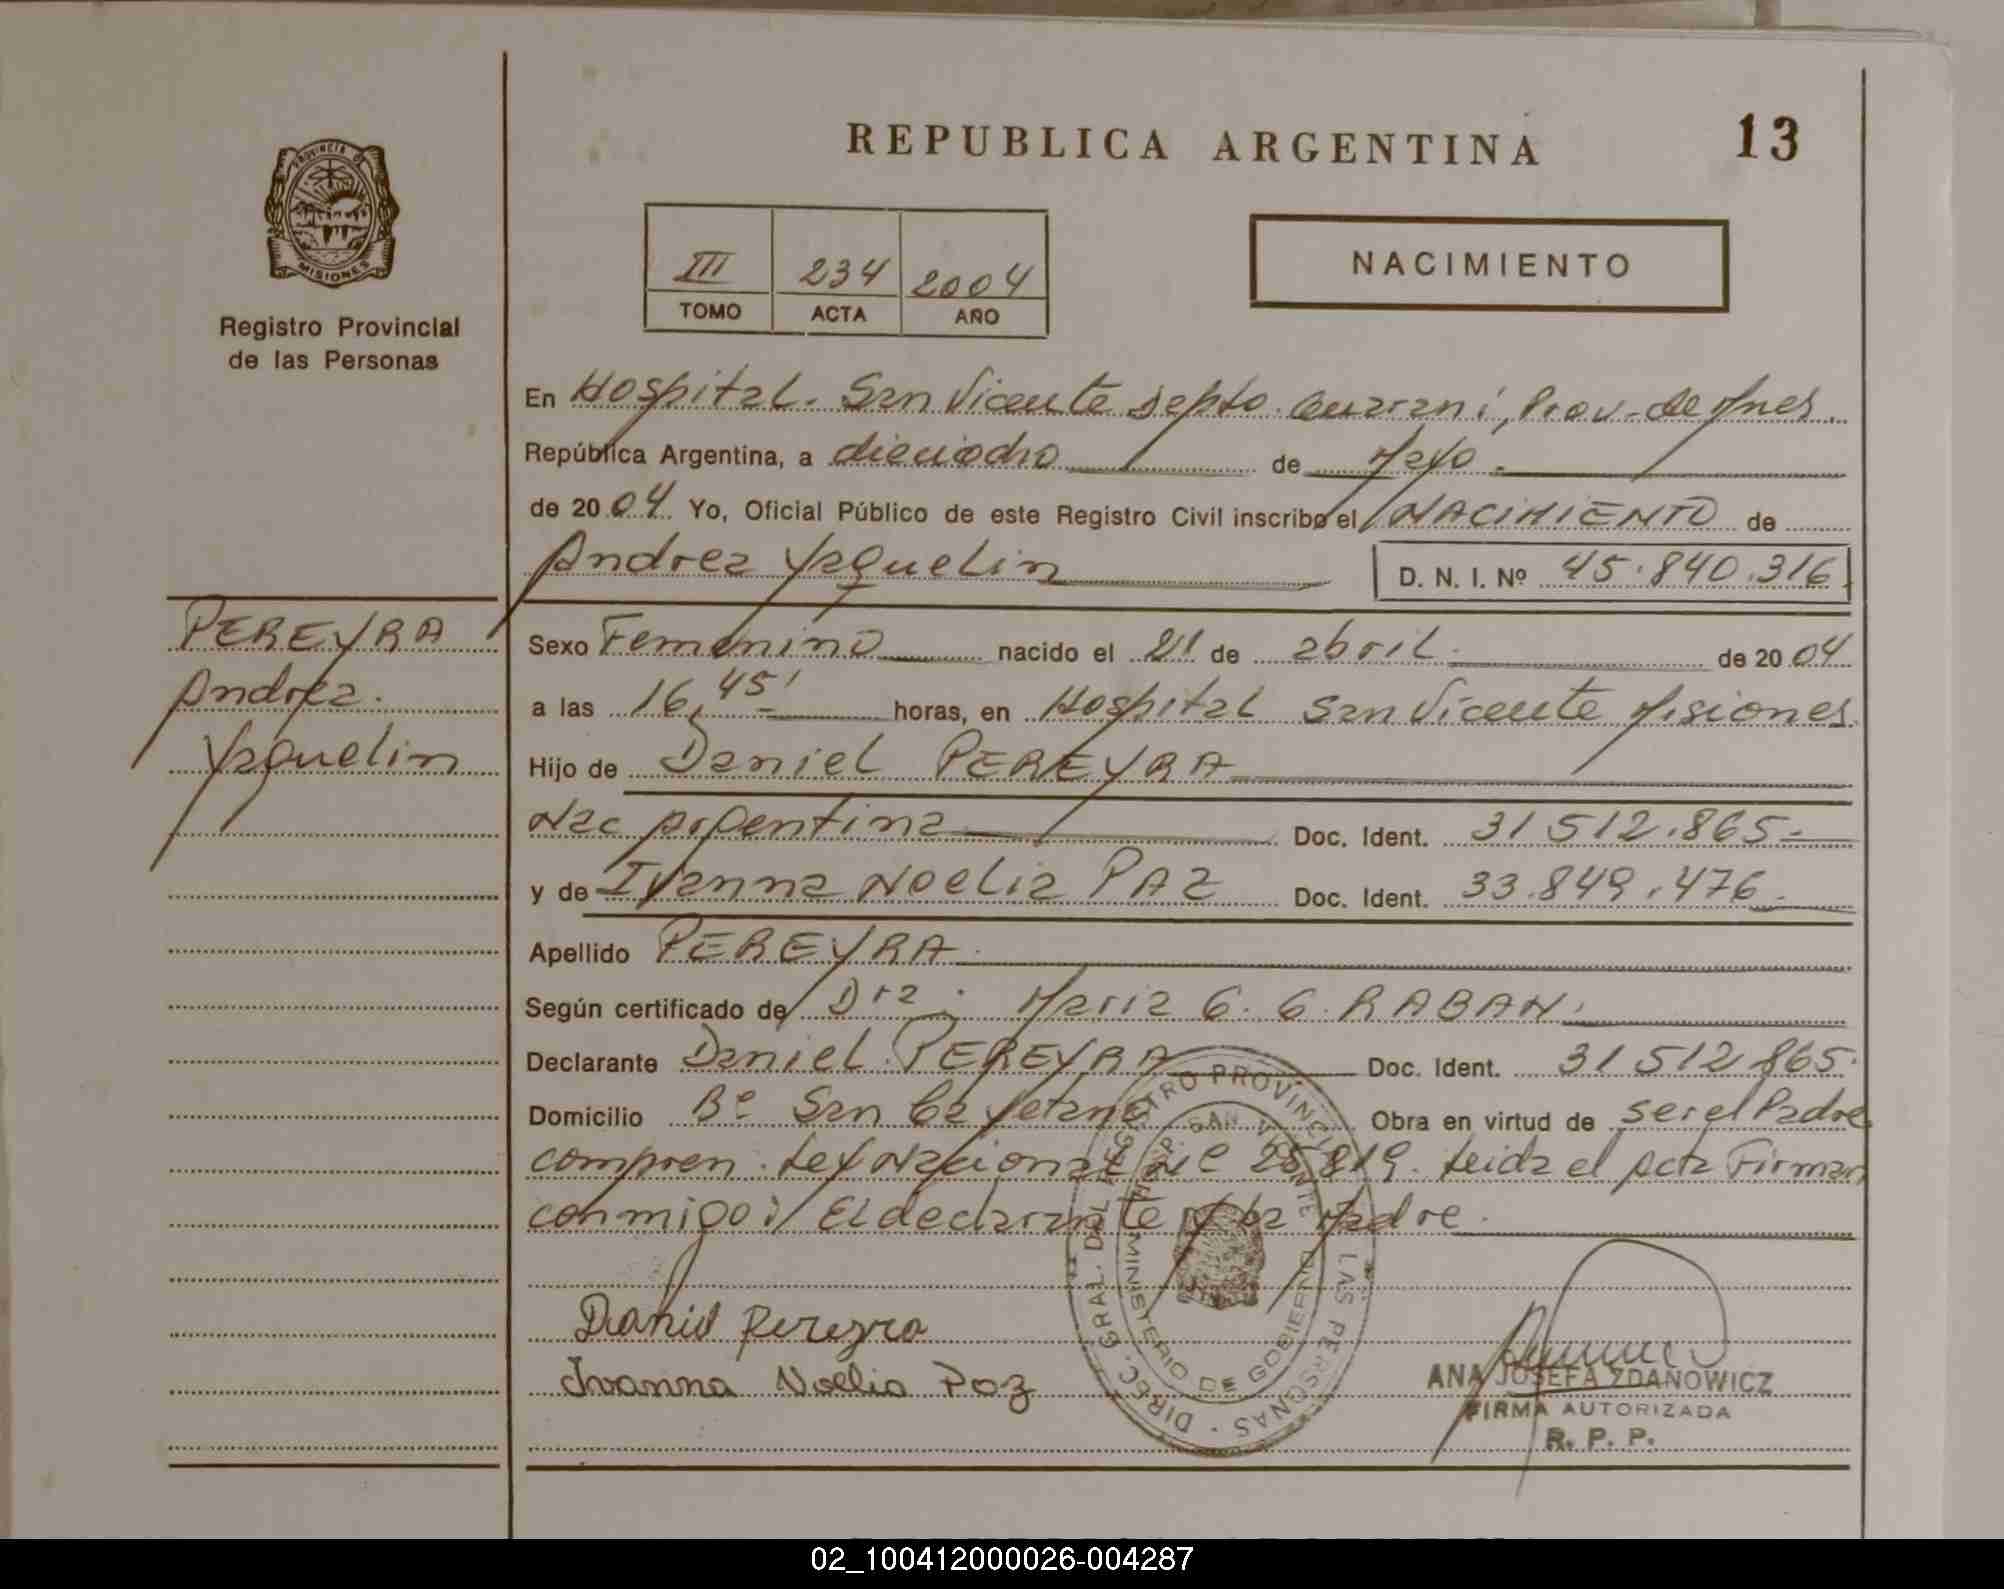 REPUBLICA ARGENTINA
13
PROVINCIA DE
MISIONES
Registro Provincial
de las Personas
III 234 2004
TOMO ACTA AÑO
NACIMIENTO
En Hospital. San Vicente depto. Guarani, Prov. de Mnes.
República Argentina, a dieciocho de Mayo.
de 2004 Yo, Oficial Público de este Registro Civil inscribo el NACIMIENTO de
Andrea Yaquelin D. N. I. Nº 45.840.316.
PEREYRA
Andrea.
Yaquelin
Sexo Femenino nacido el 21 de abril. de 2004
a las 16,45' horas, en Hospital San Vicente Misiones.
Hijo de Daniel PEREYRA
Nac Argentina Doc. Ident. 31 512.865.-
y de Ivanna Noelia PAZ Doc. Ident. 33.849.476.
Apellido PEREYRA.
Según certificado de Dra. Maria G. G. RABAN.
Declarante Daniel PEREYRA Doc. Ident. 31 512 865.
Domicilio Bº San Cayetano Obra en virtud de ser el Padre
compren. Ley Nacional Nº 25.819. Leida el Acta Firman
conmigo: El declarante y la Madre.
Daniel Pereyra
Ivanna Noelia Paz
DIREC. GRAL. DEL REGISTRO PROVINCIAL LAS PERSONAS
MINISTERIO DE GOBIERNO
HOSP. SAN VICENTE
ANA JOSEFA ZDANOWICZ
FIRMA AUTORIZADA
R. P. P.
02_100412000026-004287